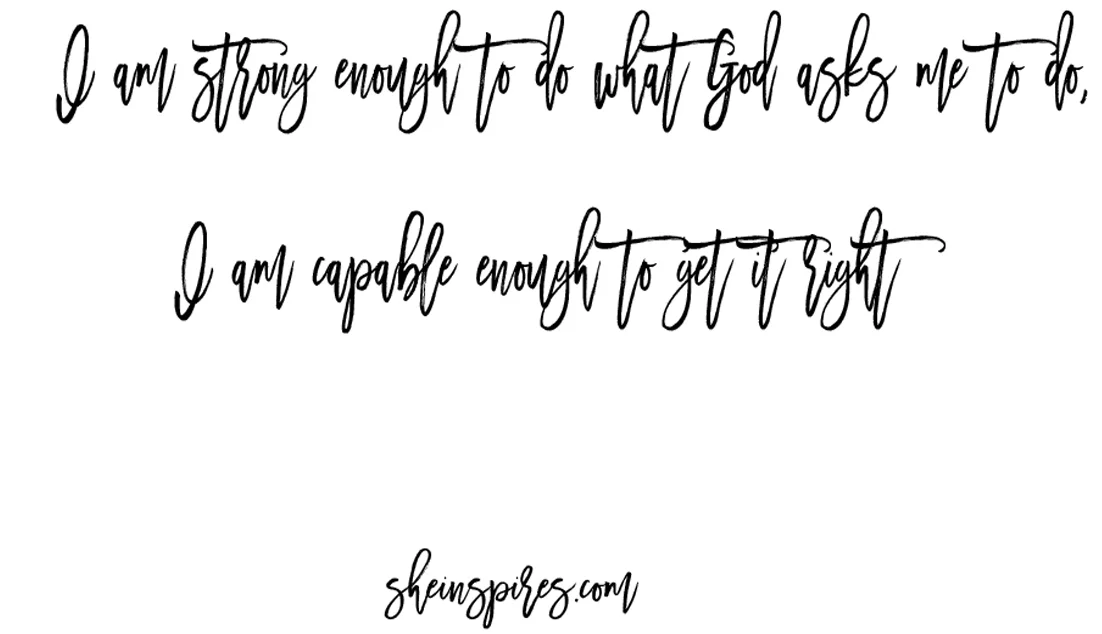 I am strong enough to do what God asks me to do,
I am capable enough to get it right
sheinspires.com